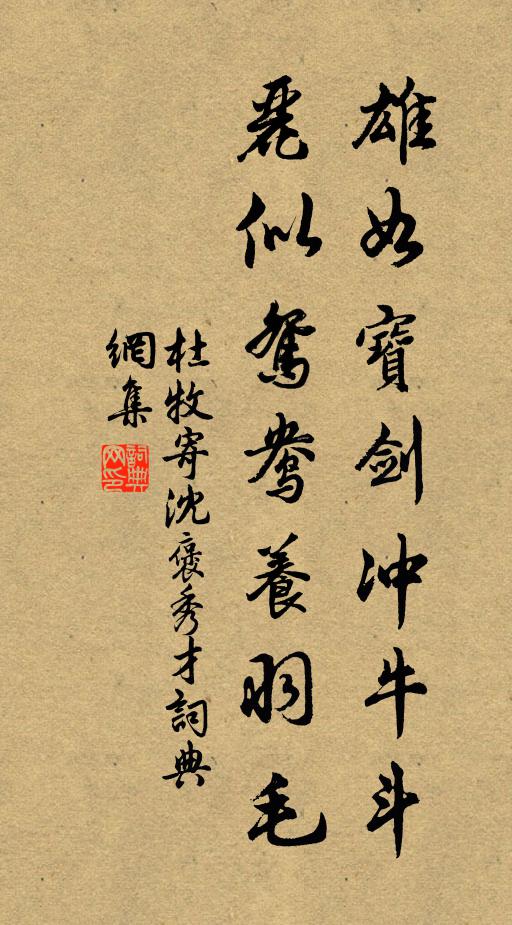 雄如寶劍冲牛斗
麗似鴛鴦養羽毛
杜牧寄沈褒秀才詞典
網集
詞典網印